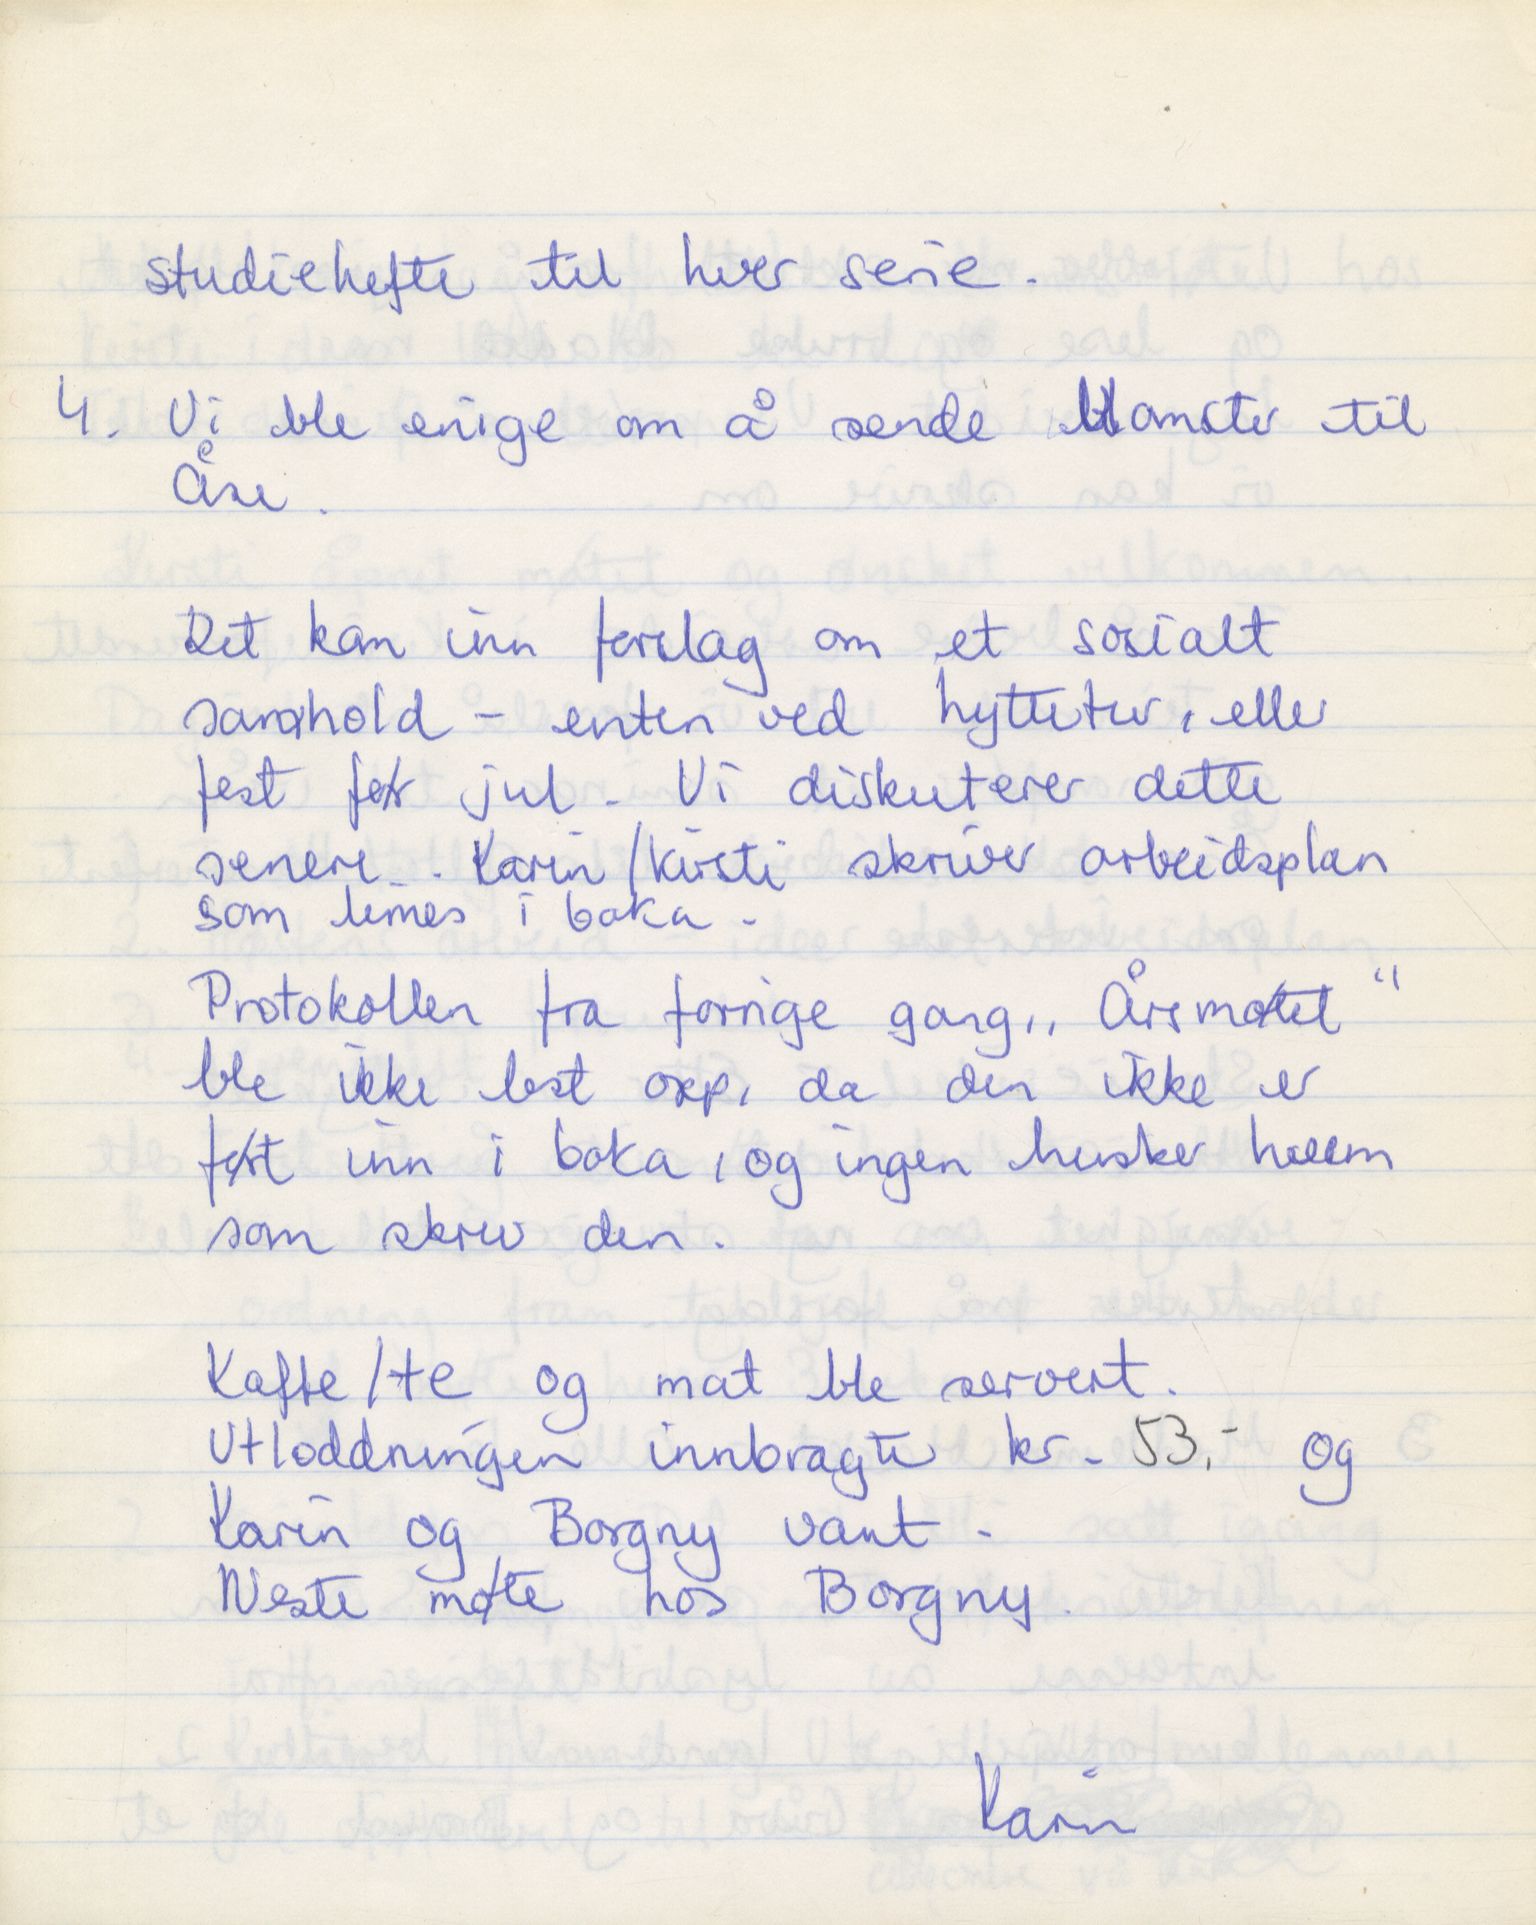 studiehefte til hver serie.
4. Vi ble enige om å sende blomster til
Åse.
Det kom inn forslag om et sosialt
samhold - enten ved hyttetur, eller
fest før jul. Vi diskuterer dette
senere. Karin/Kirsti skriver arbeidsplan
som limes i boka.
Protokollen fra forrige gang,, Årsmøtet"
ble ikke lest opp, da den ikke er
ført inn i boka, og ingen husker hvem
som skrev den.
Kaffe/te og mat ble servert.
Utloddningen innbragte kr. 53,- og
Karin og Borgny vant.
Neste møte hos Borgny.
Karin